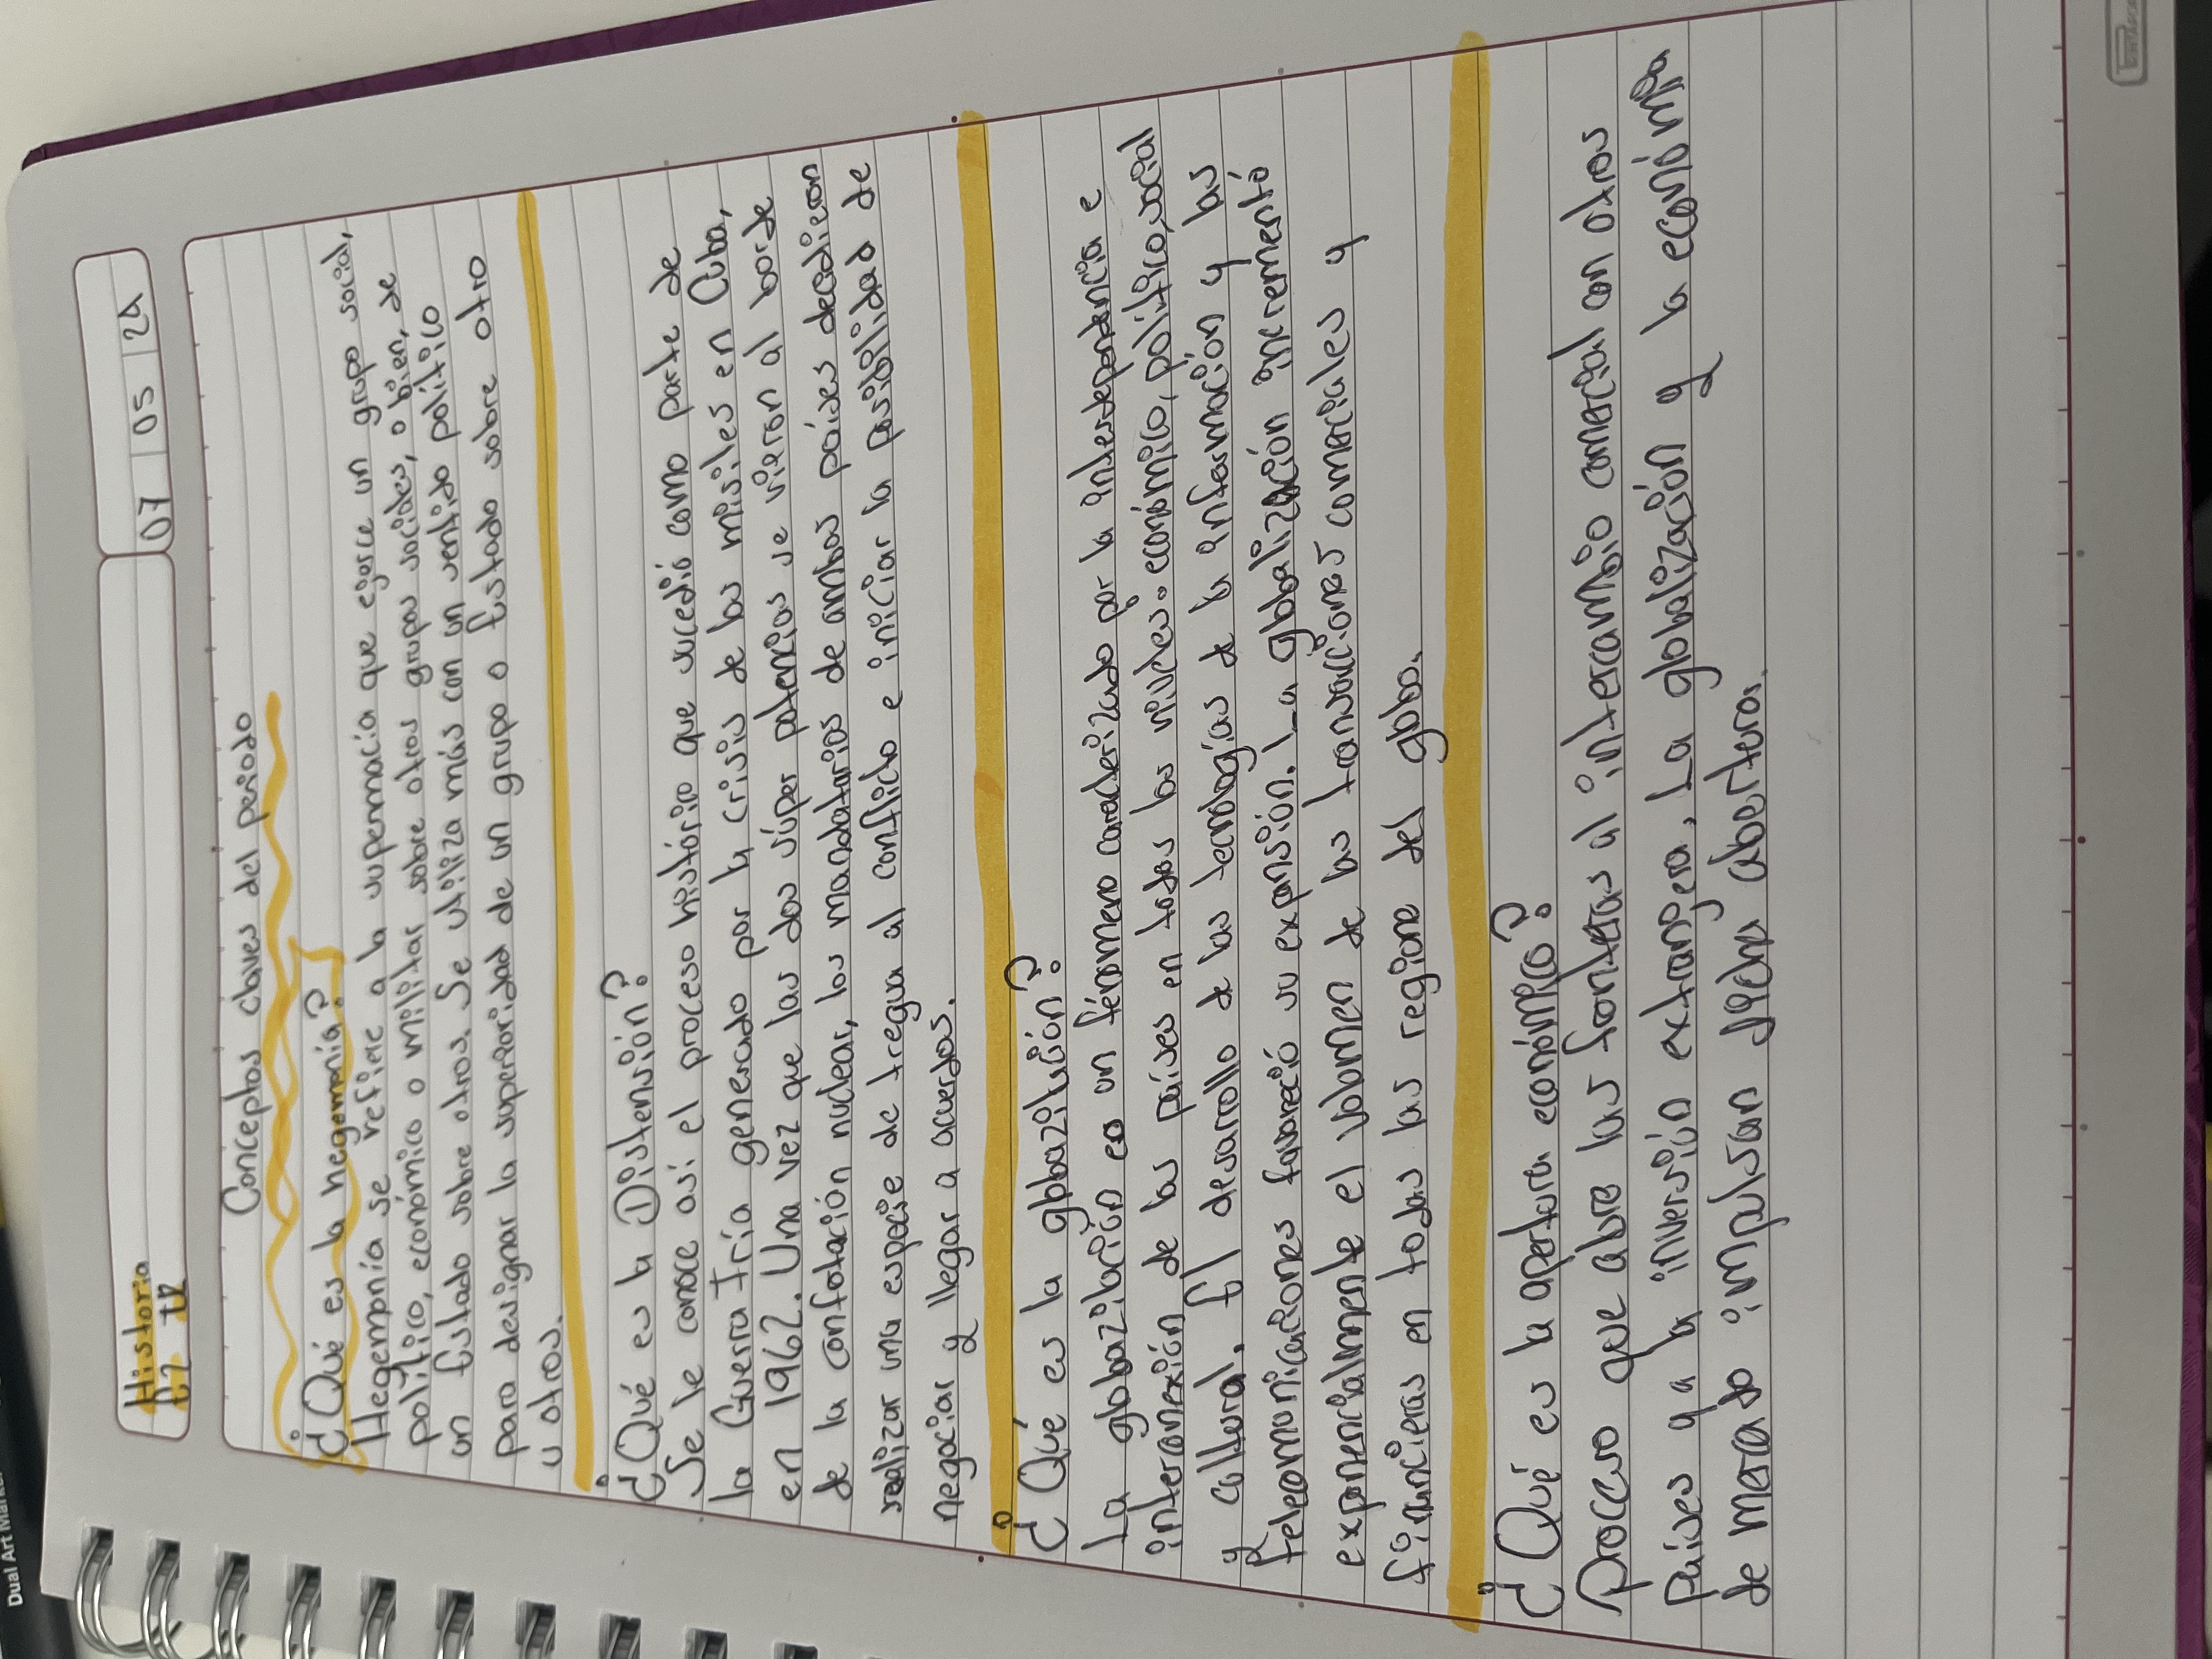 Historia
07 05 24
Conceptos claves del periodo
¿Qué es la hegemonía?
Hegempnía se refiere a la supermacía que ejerce un grupo social,
político, económico o militar sobre otros grupos sociales, o bien, de
un Estado sobre otros. Se utiliza más con un sentido político
para designar la superioridad de un grupo o Estado sobre otro
u otros.
¿Qué es la Distensión?
Se le conoce asi el proceso histórico que sucedió como parte de
la Guerra Fría generado por la crisis de los misiles en Cuba,
en 1962. Una vez que las dos súper potencias se vieron al borde
de la confotación nuclear, los mandatarios de ambos países decidieron
realizar una especie de tregua al conflicto e iniciar la posibilidad de
negociar y llegar a acuerdos.
¿Qué es la globazilación?
La globazilación es un fénomeno caracterizado por la interdependencia e
interconexión de los países en todos los niveles: económico, político, social
y cultural. El desarrollo de las tecnologías de la información y las
telecomunicaciones favoreció su expansión. La globalización incrementó
exponencialmente el volumen de las transacciones comerciales y
financieras en todas las regione del globo.
¿Qué es la apertura económica?
Proceso que abre las fronteras al intercambio comercial con otros
países y a la inversión extranjera. La globalización y la economía
de mercado impulsan dicha apertura.
Dual Art Marker